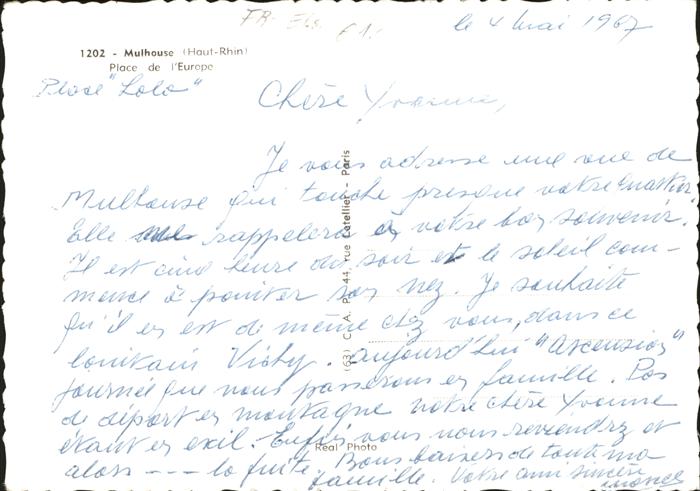 FR. Els. £1.
le 4 mai 1967
1202 - Mulhouse (Haut-Rhin)
Place de l'Europe
Place "Lolo"
Chère Yvonne,
Je vous adresse une vue de
Mulhouse qui touche presque votre quartier.
Elle rappelera à votre bon souvenir.
Il est cinq heure du soir et le soleil com-
mence à pointer son nez. Je souhaite
qu'il en est de même chez vous, dans ce
lointain Vichy. Aujourd'hui "Ascension"
journée que nous passerons en famille. Pas
de départ en montagne votre chère Yvonne
étant en exil. Enfin, vous nous reviendrez et
alors --- la fuite. Bons baisers de toute ma
famille. Votre ami sincère
(63) C.A.P. - 44, rue Letellier - Paris
Real Photo